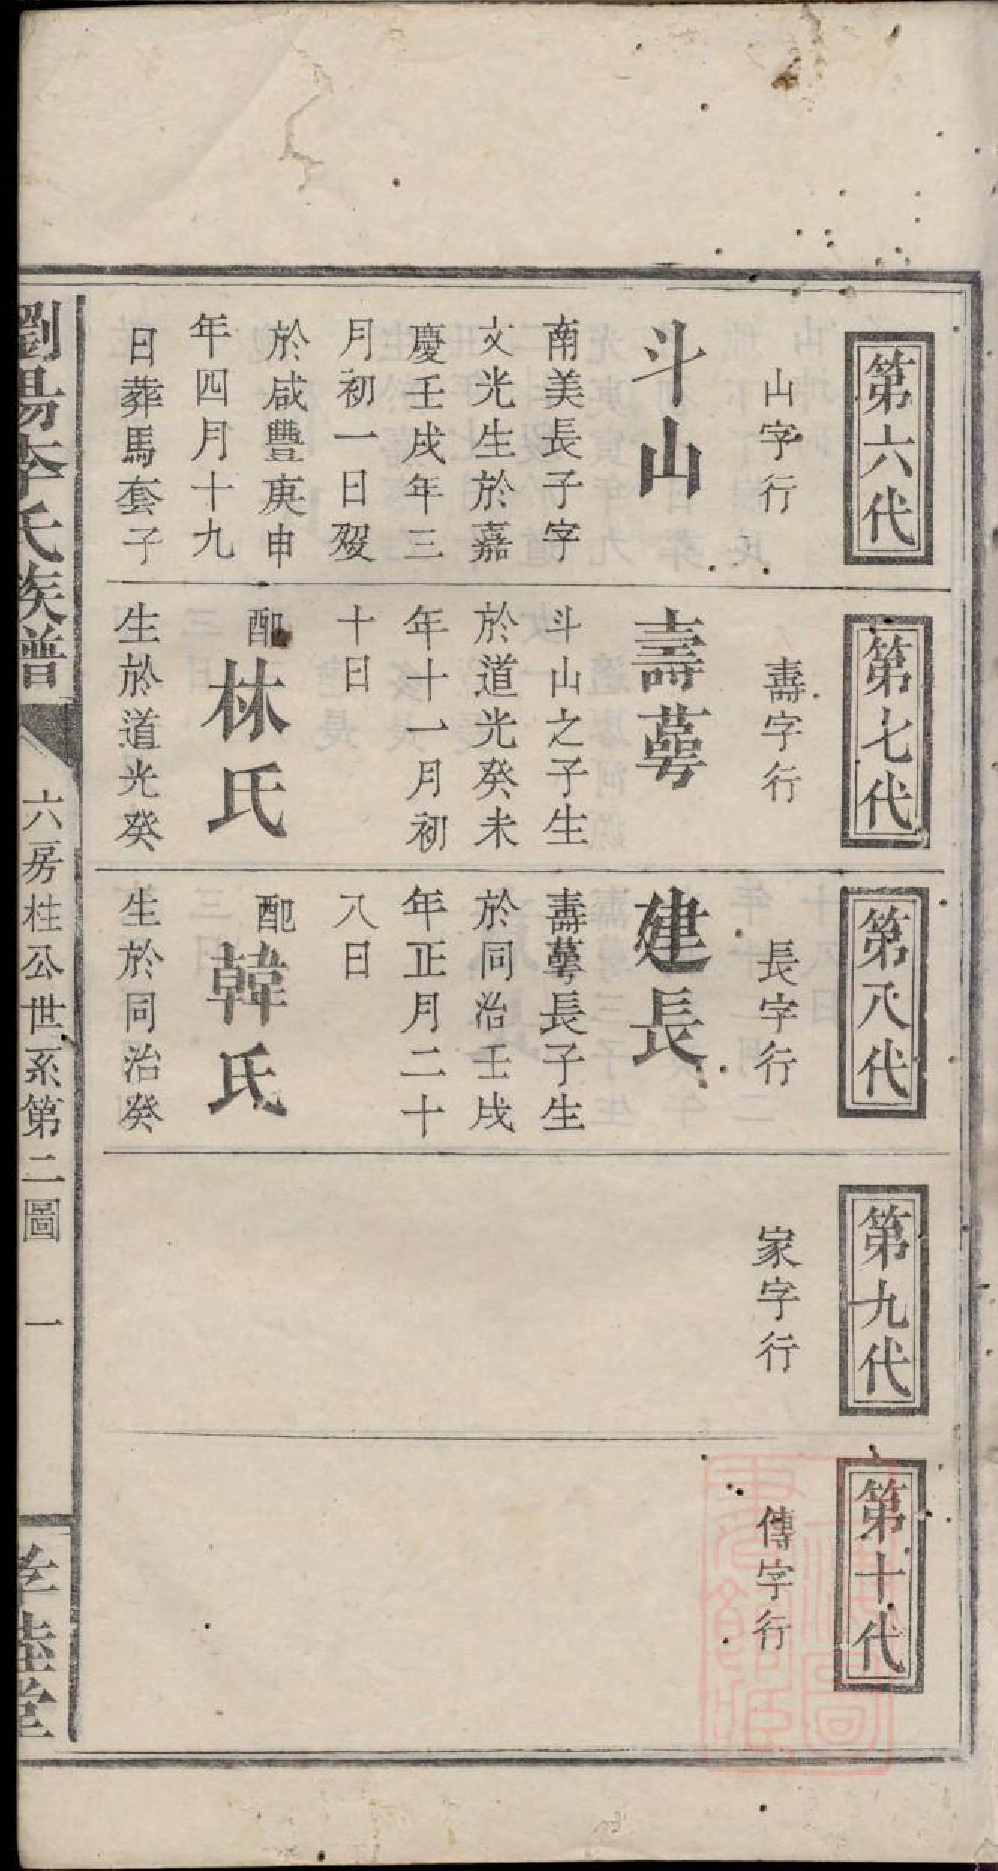 第六代
山字行
斗山
南美長子字
文光生於嘉
慶壬戌年三
月初一日殁
於咸豐庚申
年四月十九
日葬馬套子
第七代
壽字行
壽萼
斗山之子生
於道光癸未
年十一月初
十日
配
林氏
生於道光癸
第八代
長字行
建長
壽萼長子生
於同治壬戌
年正月二十
八日
配
韓氏
生於同治癸
第九代
家字行
第十代
傳字行
劉易李氏族譜
六房柱公世系第二圖
一
堂